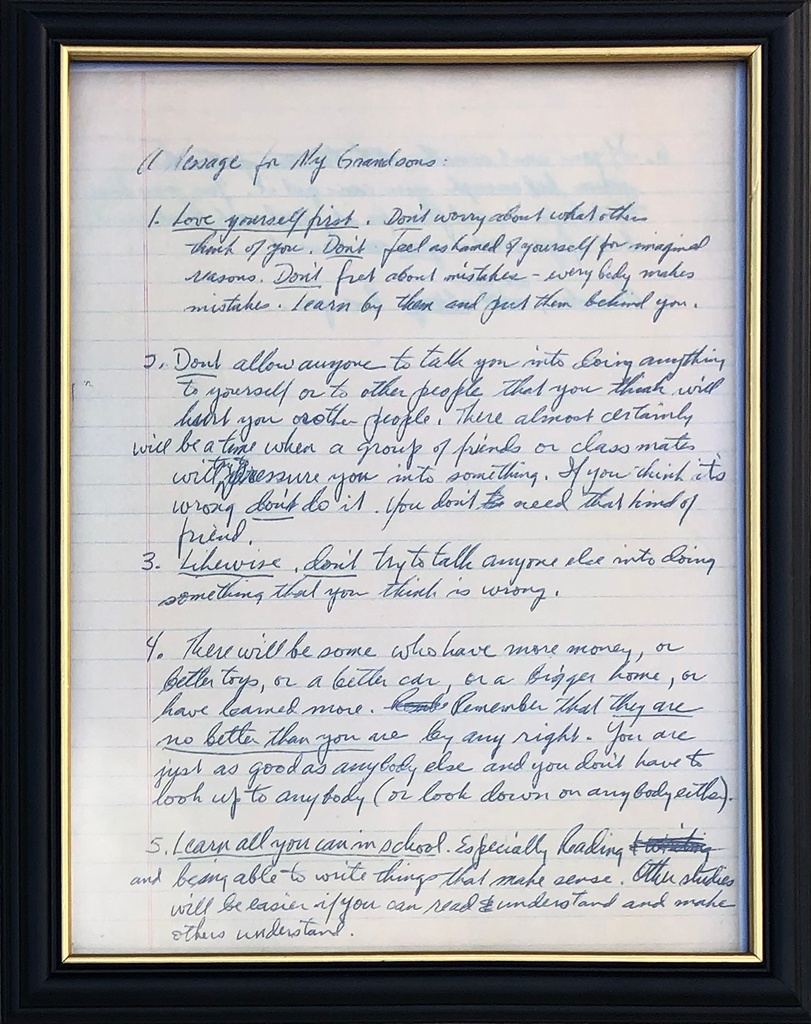 A Message for My Grandsons:
1. Love yourself first. Don't worry about what others
think of you. Don't feel ashamed of yourself for imagined
reasons. Don't fret about mistakes - everybody makes
mistakes. Learn by them and put them behind you.
2. Dont allow anyone to talk you into doing anything
to yourself or to other people that you think will
hurt you or other people. There almost certainly
will be a time when a group of friends or class mates
will pressure you into something. If you think it's
wrong don't do it. You don't need that kind of
friend.
3. Likewise, don't try to talk anyone else into doing
something that you think is wrong.
4. There will be some who have more money, or
better toys, or a better car, or a bigger home, or
have learned more. Remember that they are
no better than you are by any right. You are
just as good as anybody else and you don't have to
look up to anybody (or look down on anybody either).
5. Learn all you can in school. Especially Reading
and being able to write things that make sense. Other studies
will be easier if you can read & understand and make
others understand.